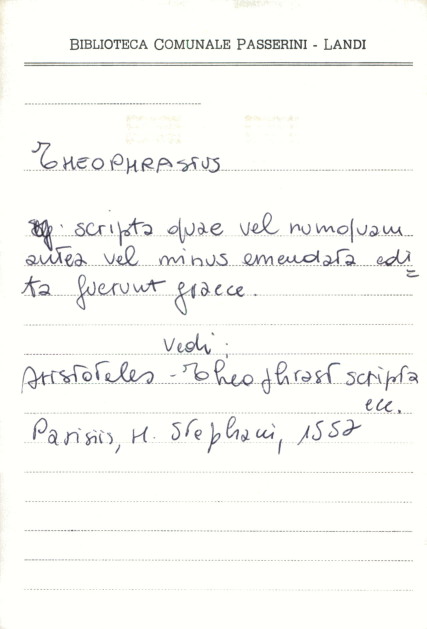 BIBLIOTECA COMUNALE PASSERINI - LANDI
THEOPHRASTUS
scripta quae vel numquam
antea vel minus emendata edi=
ta fuerunt graece.
Vedi:
Aristoteles - Theophrast scripta
ecc.
Parisiis, H. Stephani, 1557